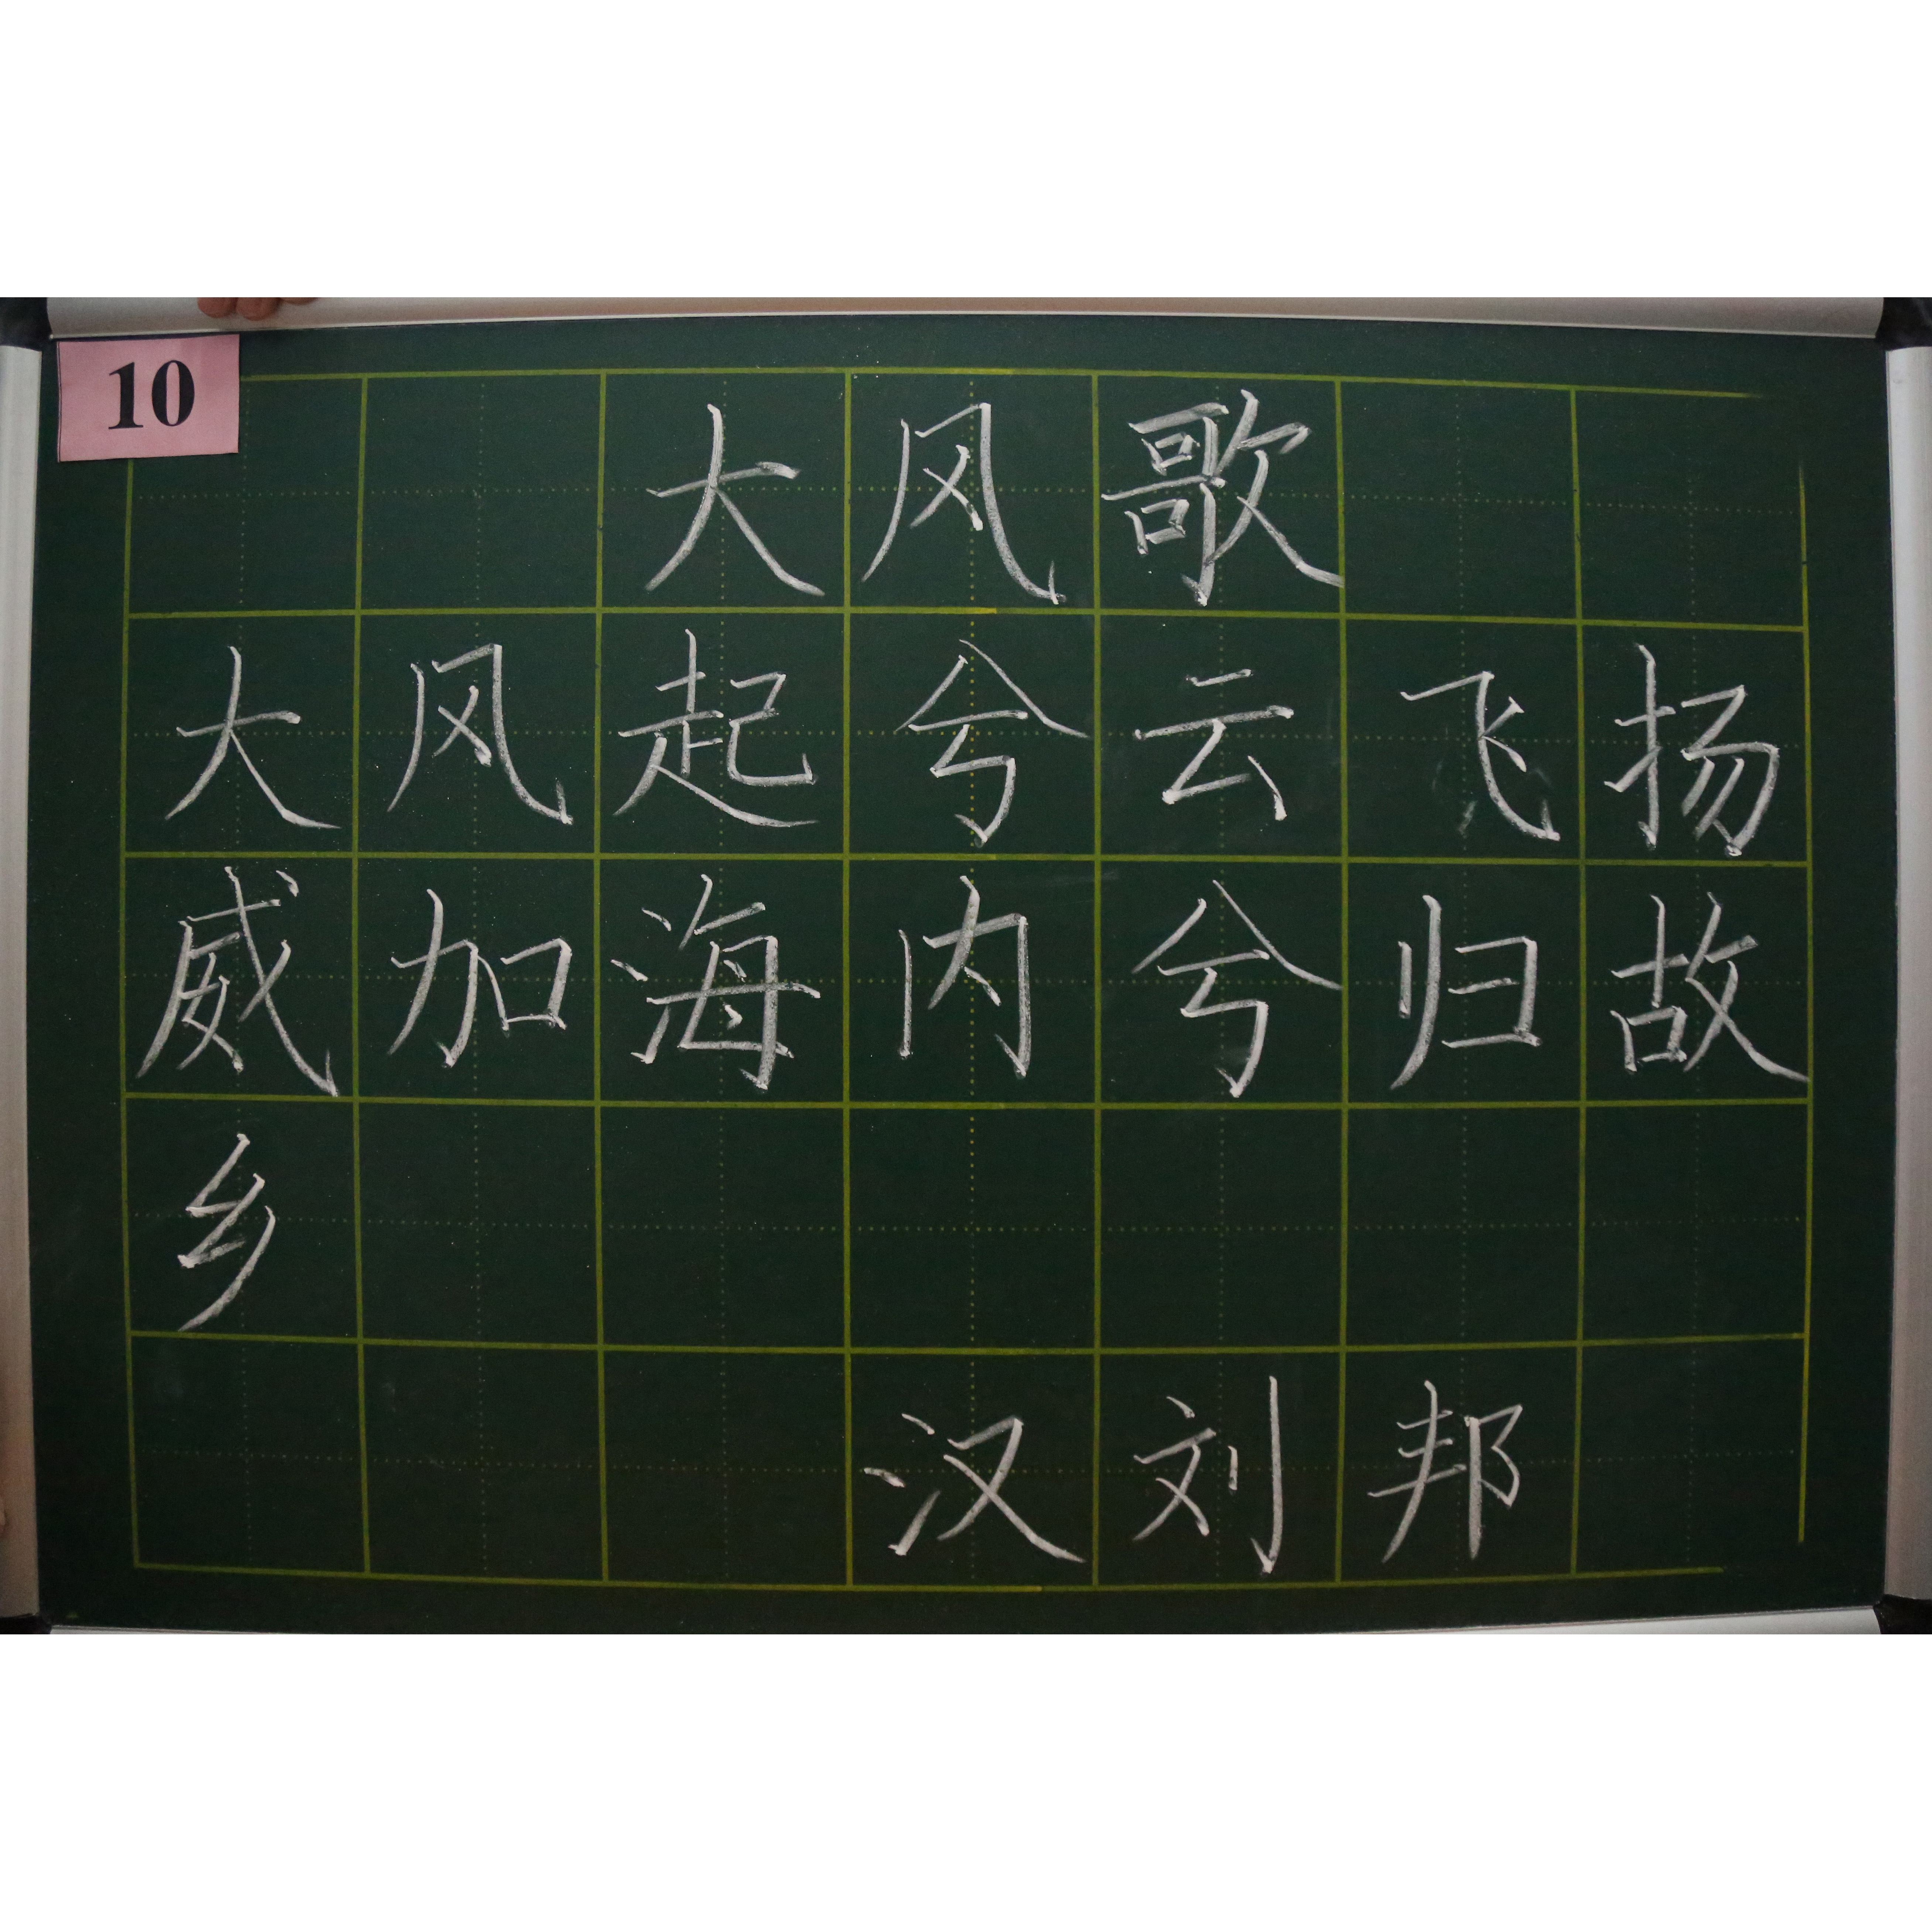 10
大风歌
大风起兮云飞扬
威加海内兮归故
乡
汉刘邦